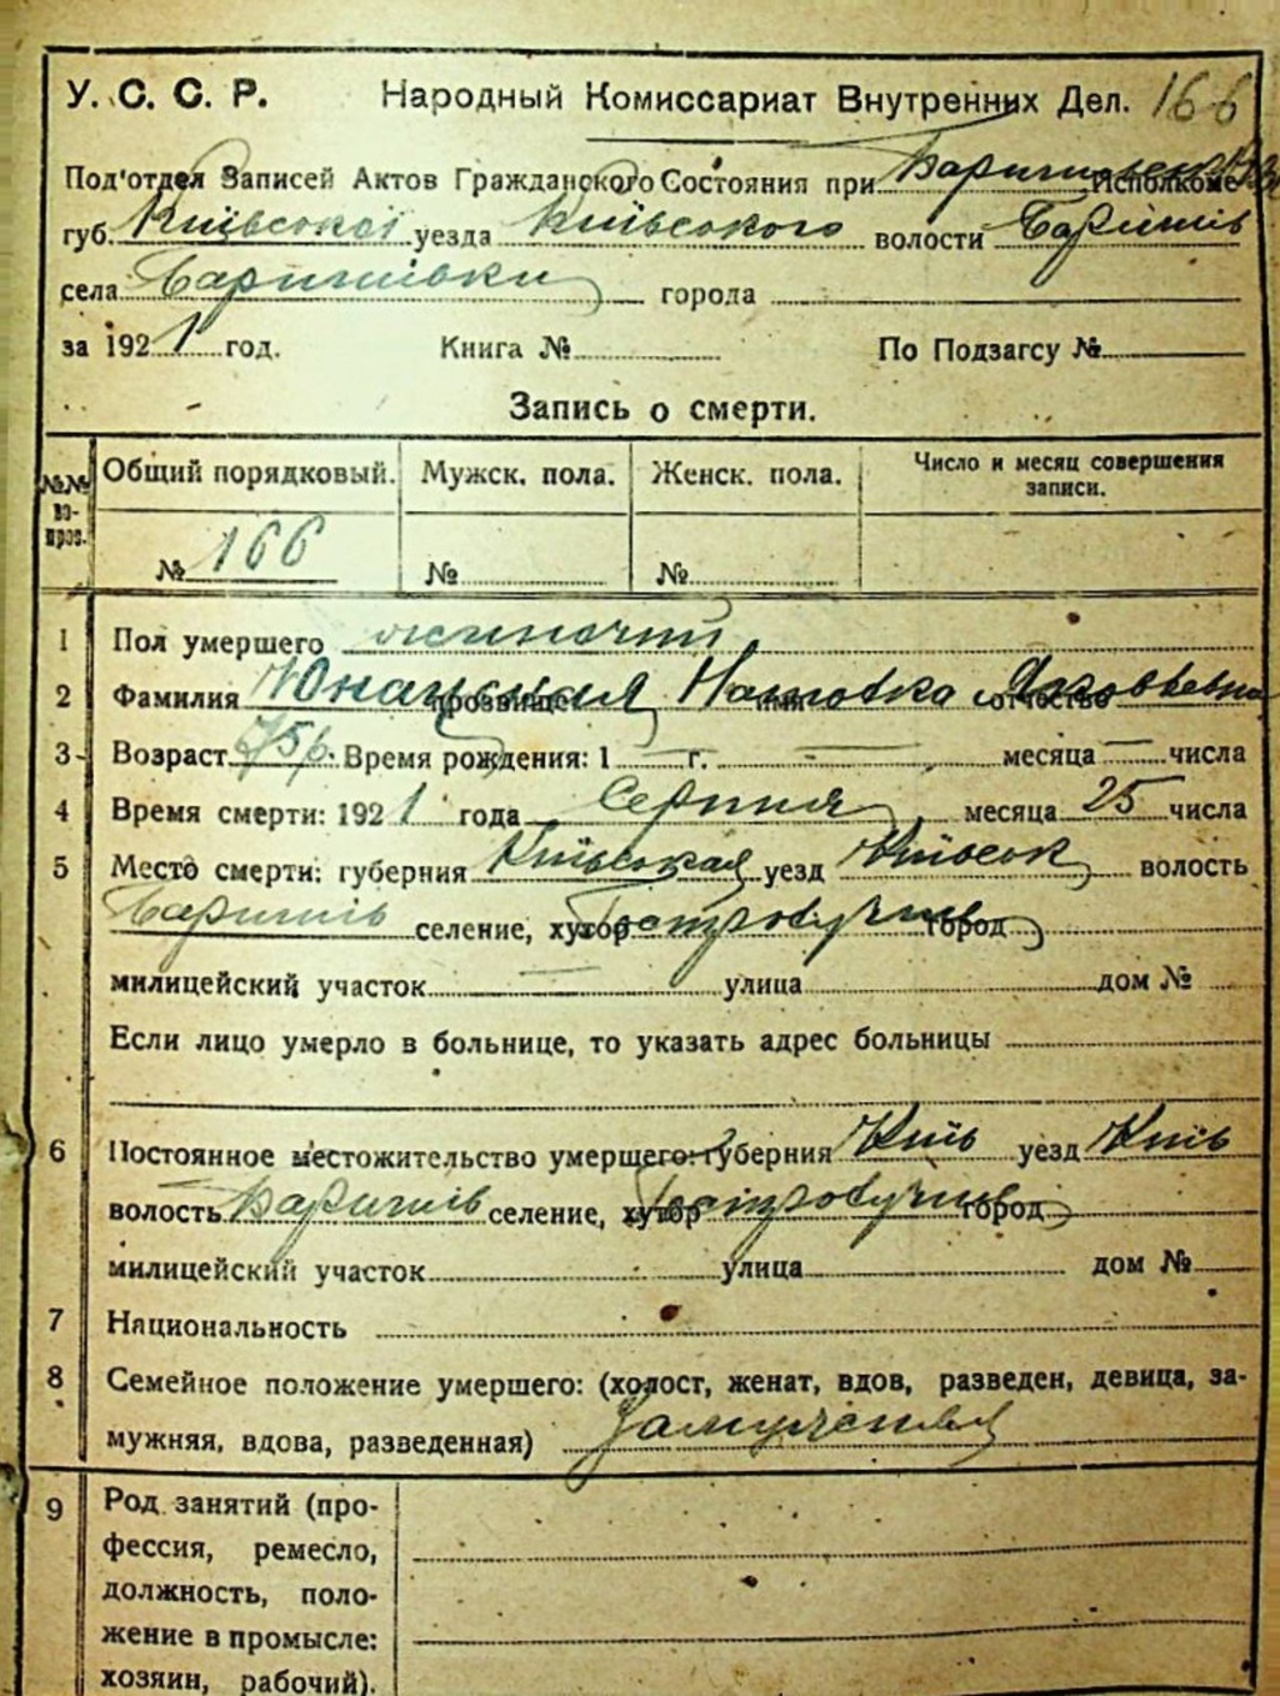 У. С. С. Р. Народный Комиссариат Внутренних Дел. 166
Под'отдел Записей Актов Гражданского Состояния при Исполкоме
губ. Київської уезда Київського волости Баришів
села Баришівки города
за 1921 год. Книга № По Подзагсу №
Запись о смерти.
№№ во-прос. Общий порядковый. Мужск. пола. Женск. пола. Число и месяц совершения записи.
№ 166 № №
1 Пол умершего жиночий
2 Фамилия прозвище имя отчество Яковлевна
3 Возраст 75 р. Время рождения: 1 — г. — месяца — числа
4 Время смерти: 1921 года Серпня месяца 25 числа
5 Место смерти: губерния Київская уезд Київськ волость
Баришів селение, хутор город
милицейский участок — улица дом №
Если лицо умерло в больнице, то указать адрес больницы
6 Постоянное местожительство умершего: губерния Київ уезд Київ
волость Баришів селение, хутор город
милицейский участок улица дом №
7 Национальность
8 Семейное положение умершего: (холост, женат, вдов, разведен, девица, за-
мужняя, вдова, разведенная)
9 Род занятий (про-
фессия, ремесло,
должность, поло-
жение в промысле:
хозяин, рабочий).